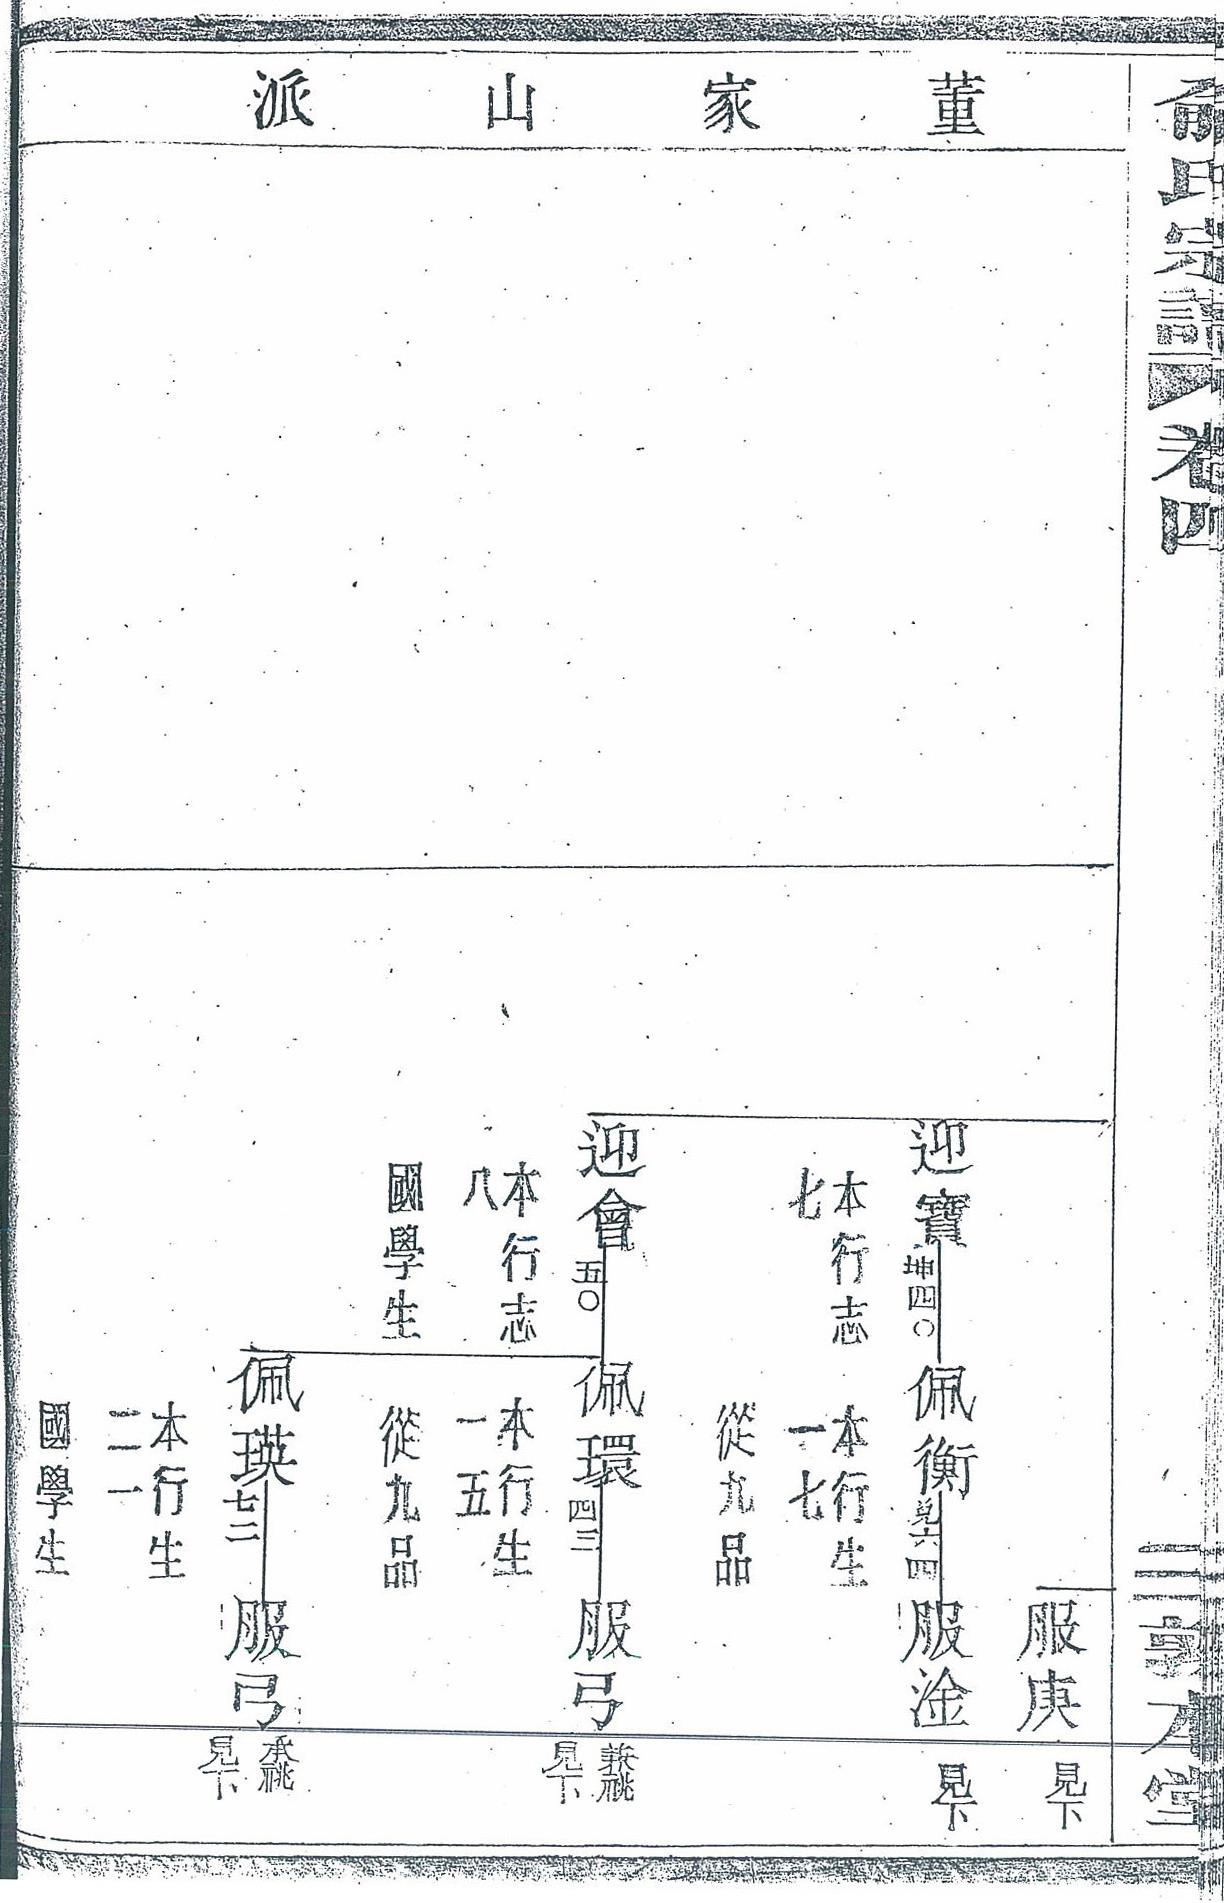 俞氏宗譜
卷四
三
敦本堂
董家山派
服庚
見下
迎寶
坤四〇
本行志
七
佩衡
兌六四
本行生
一七
從九品
服淦
見下
迎會
五〇
本行志
八
國學生
佩環
四三
本行生
一五
從九品
服弓
兼祧
見下
佩瑛
七二
本行生
二一
國學生
服弓
承祧
見下